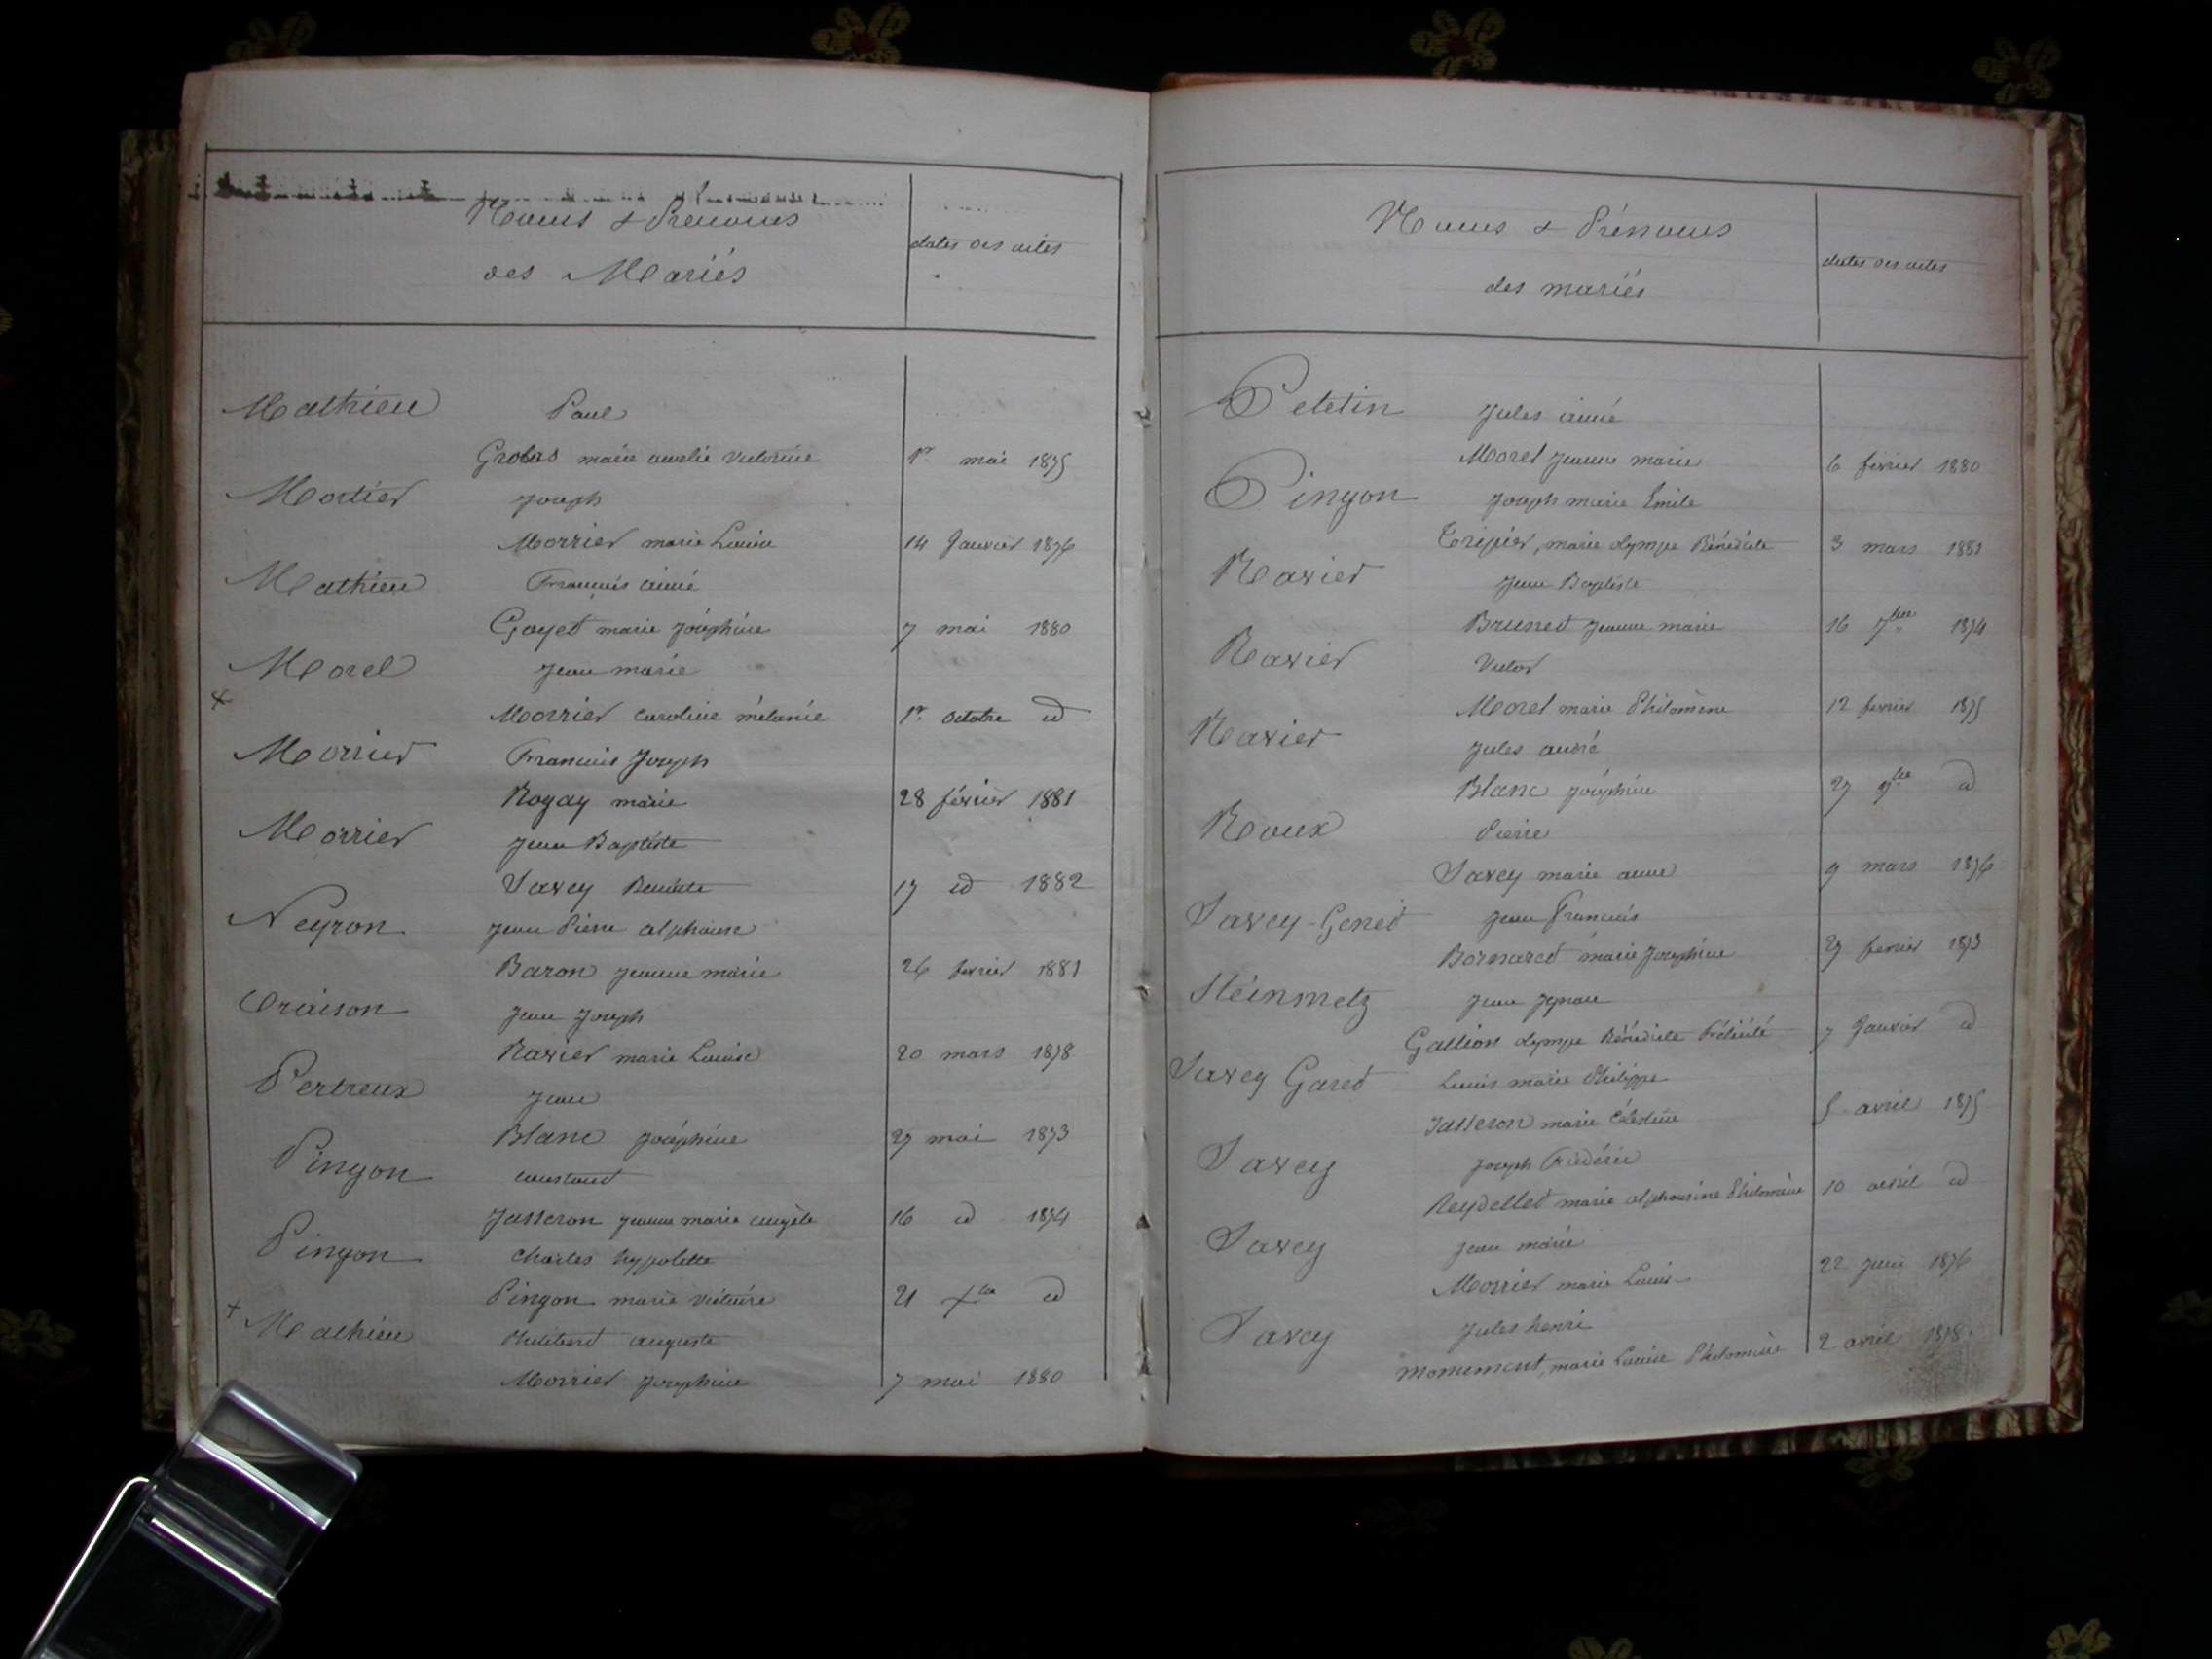 Noms & Prénoms
des Mariés
dates des actes
Mathieu Paul
Grobas marie amelie victorine 1er mai 1875
Mortier Joseph
Morrier marie Louise 14 Janvier 1876
Mathieu François aimé
Goyet marie Joséphine 7 mai 1880
Morel Jean marie
x Morrier caroline mélanie 1er octobre id
Morrier Francois Joseph
Rogay marie 28 février 1881
Morrier Jean Baptiste
Savey Benoite 17 id 1882
Neyron Jean Pierre alphonse
Baron Jeanne marie 26 fevrier 1881
Oraison Jean Joseph
Ravier marie Louise 20 mars 1878
Pertreux Jean
Blanc Joséphine 27 mai 1873
Pingon constant
Jasseron Jeanne marie angèle 16 id 1874
Pingon Charles hyppolitte
Pingon marie victoire 21 Xbre id
+ Mathieu Philibert auguste
Morrier Josephine 7 mai 1880
Noms & Prénoms
des mariés
dates des actes
Petetin Jules aimé
Morel Jeanne marie 6 février 1880
Pingon Joseph marie Emile
Tripier, marie olympe Bénédicte 3 mars 1881
Ravier Jean Baptiste
Brunet Jeanne marie 16 7bre 1874
Ravier Victor
Morel marie Philomène 12 fevrier 1875
Ravier Jules andré
Blanc Joséphine 27 9bre id
Roux Pierre
Savey marie anne 9 mars 1876
Savey-Genet Jean François
Bornaret marie Josephine 27 fevrier 1873
Steinmetz Jean Ignace
Gallion olympe Bénédicte Félicité 7 Janvier id
Savey Garet Louis marie Philippe
Jasseron marie Célestine 5 avril 1875
Savey Joseph Frédéric
Reydellet marie alphonsine Philomène 10 avril id
Savey Jean marie
Morrier marie Louise 22 Juin 1876
Savey Jules henri
monument, marie Louise Philomène 2 avril 1878.